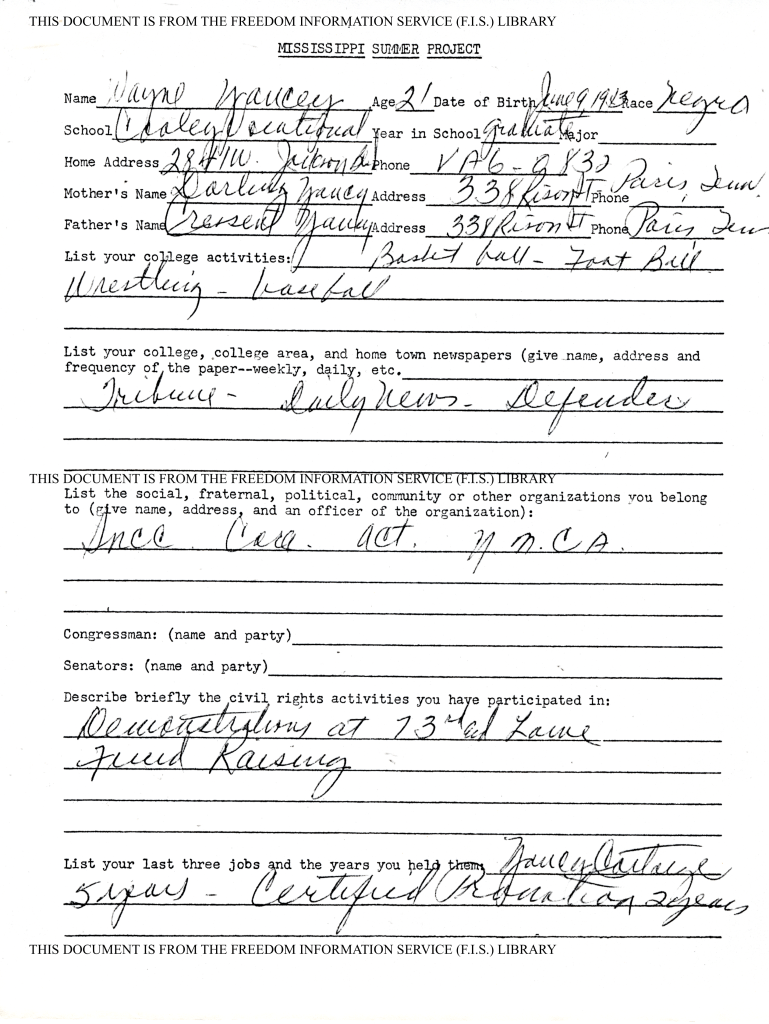 THIS DOCUMENT IS FROM THE FREEDOM INFORMATION SERVICE (F.I.S.) LIBRARY
MISSISSIPPI SUMMER PROJECT
Name Wayne Yancey Age 21 Date of Birth June 9, 1943 Race Negro
School Cooley Vocational Year in School graduate Major
Home Address 2841 W. Jackson Phone VA6-9832
Mother's Name Darling Yancy Address 338 Rison St Phone Paris, Tenn.
Father's Name Cressent Yancy Address 338 Rison St Phone Paris, Tenn
List your college activities: Basket ball - Foot Ball
Wrestling - baseball
List your college, college area, and home town newspapers (give name, address and
frequency of the paper--weekly, daily, etc.
Tribune - Daily News - Defender
THIS DOCUMENT IS FROM THE FREEDOM INFORMATION SERVICE (F.I.S.) LIBRARY
List the social, fraternal, political, community or other organizations you belong
to (give name, address, and an officer of the organization):
Sncc Core. act. Y M.C.A.
Congressman: (name and party)
Senators: (name and party)
Describe briefly the civil rights activities you have participated in:
Demonstrations at 73rd and Lowe
Fund Raising
List your last three jobs and the years you held them: Yancey
5 years - Certified 2 years
THIS DOCUMENT IS FROM THE FREEDOM INFORMATION SERVICE (F.I.S.) LIBRARY